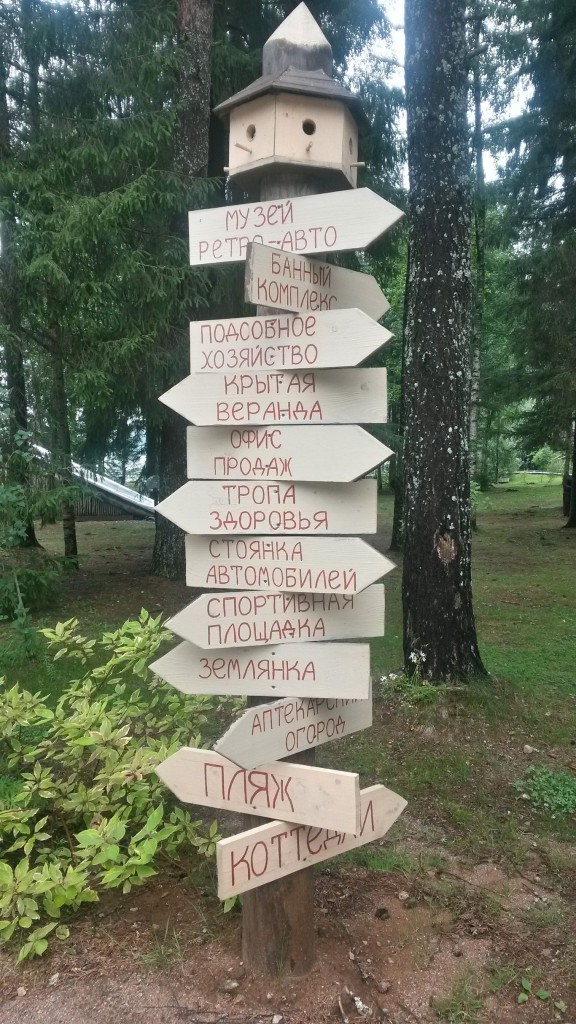 МУЗЕЙ
РЕТРО-АВТО
БАННЫЙ
КОМПЛЕКС
ПОДСОБНОЕ
ХОЗЯЙСТВО
КРЫТАЯ
ВЕРАНДА
ОФИС
ПРОДАЖ
ТРОПА
ЗДОРОВЬЯ
СТОЯНКА
АВТОМОБИЛЕЙ
СПОРТИВНАЯ
ПЛОЩАДКА
ЗЕМЛЯНКА
АПТЕКАРСКИЙ
ОГОРОД
ПЛЯЖ
КОТТЕДЖИ